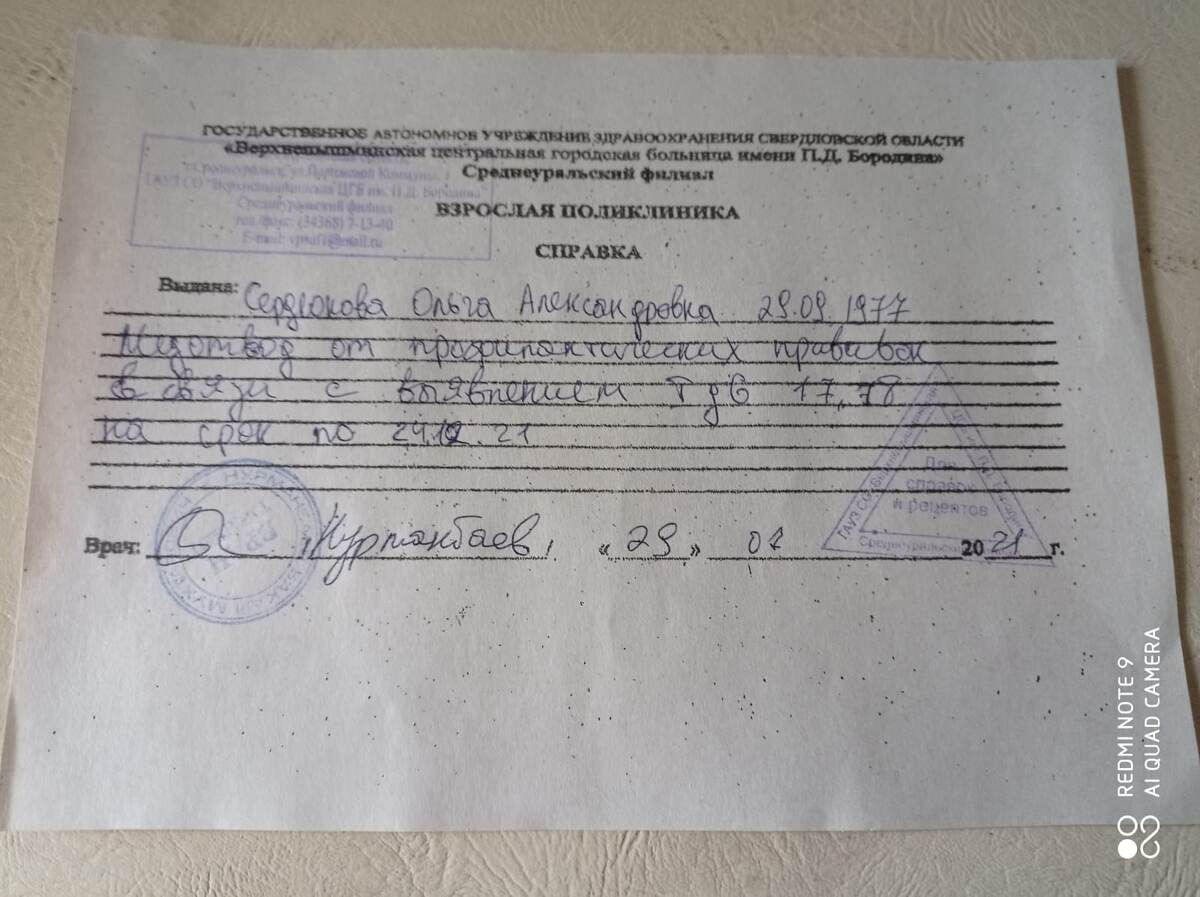 ГОСУДАРСТВЕННОЕ АВТОНОМНОЕ УЧРЕЖДЕНИЕ ЗДРАВООХРАНЕНИЯ СВЕРДЛОВСКОЙ ОБЛАСТИ
«Верхнепышминская центральная городская больница имени П.Д. Бородина»
Среднеуральский филиал
г. Среднеуральск, ул.Парижской Коммуны,
ГАУЗ СО "Верхнепышминская ЦГБ им. П.Д. Бородина"
Среднеуральский филиал
тел./факс: (34368) 7-13-40
E-mail:
ВЗРОСЛАЯ ПОЛИКЛИНИКА
СПРАВКА
Выдана: Сердюкова Ольга Александровна 29.09.1977
Медотвод от профилактических прививок
в связи с выявлением 17,78
на срок по 24.12.21
Для
справок
и рецептов
ГАУЗ СО
Среднеуральский
Врач: Нурманбаев, «29» 07 2021 г.
REDMI NOTE 9
AI QUAD CAMERA